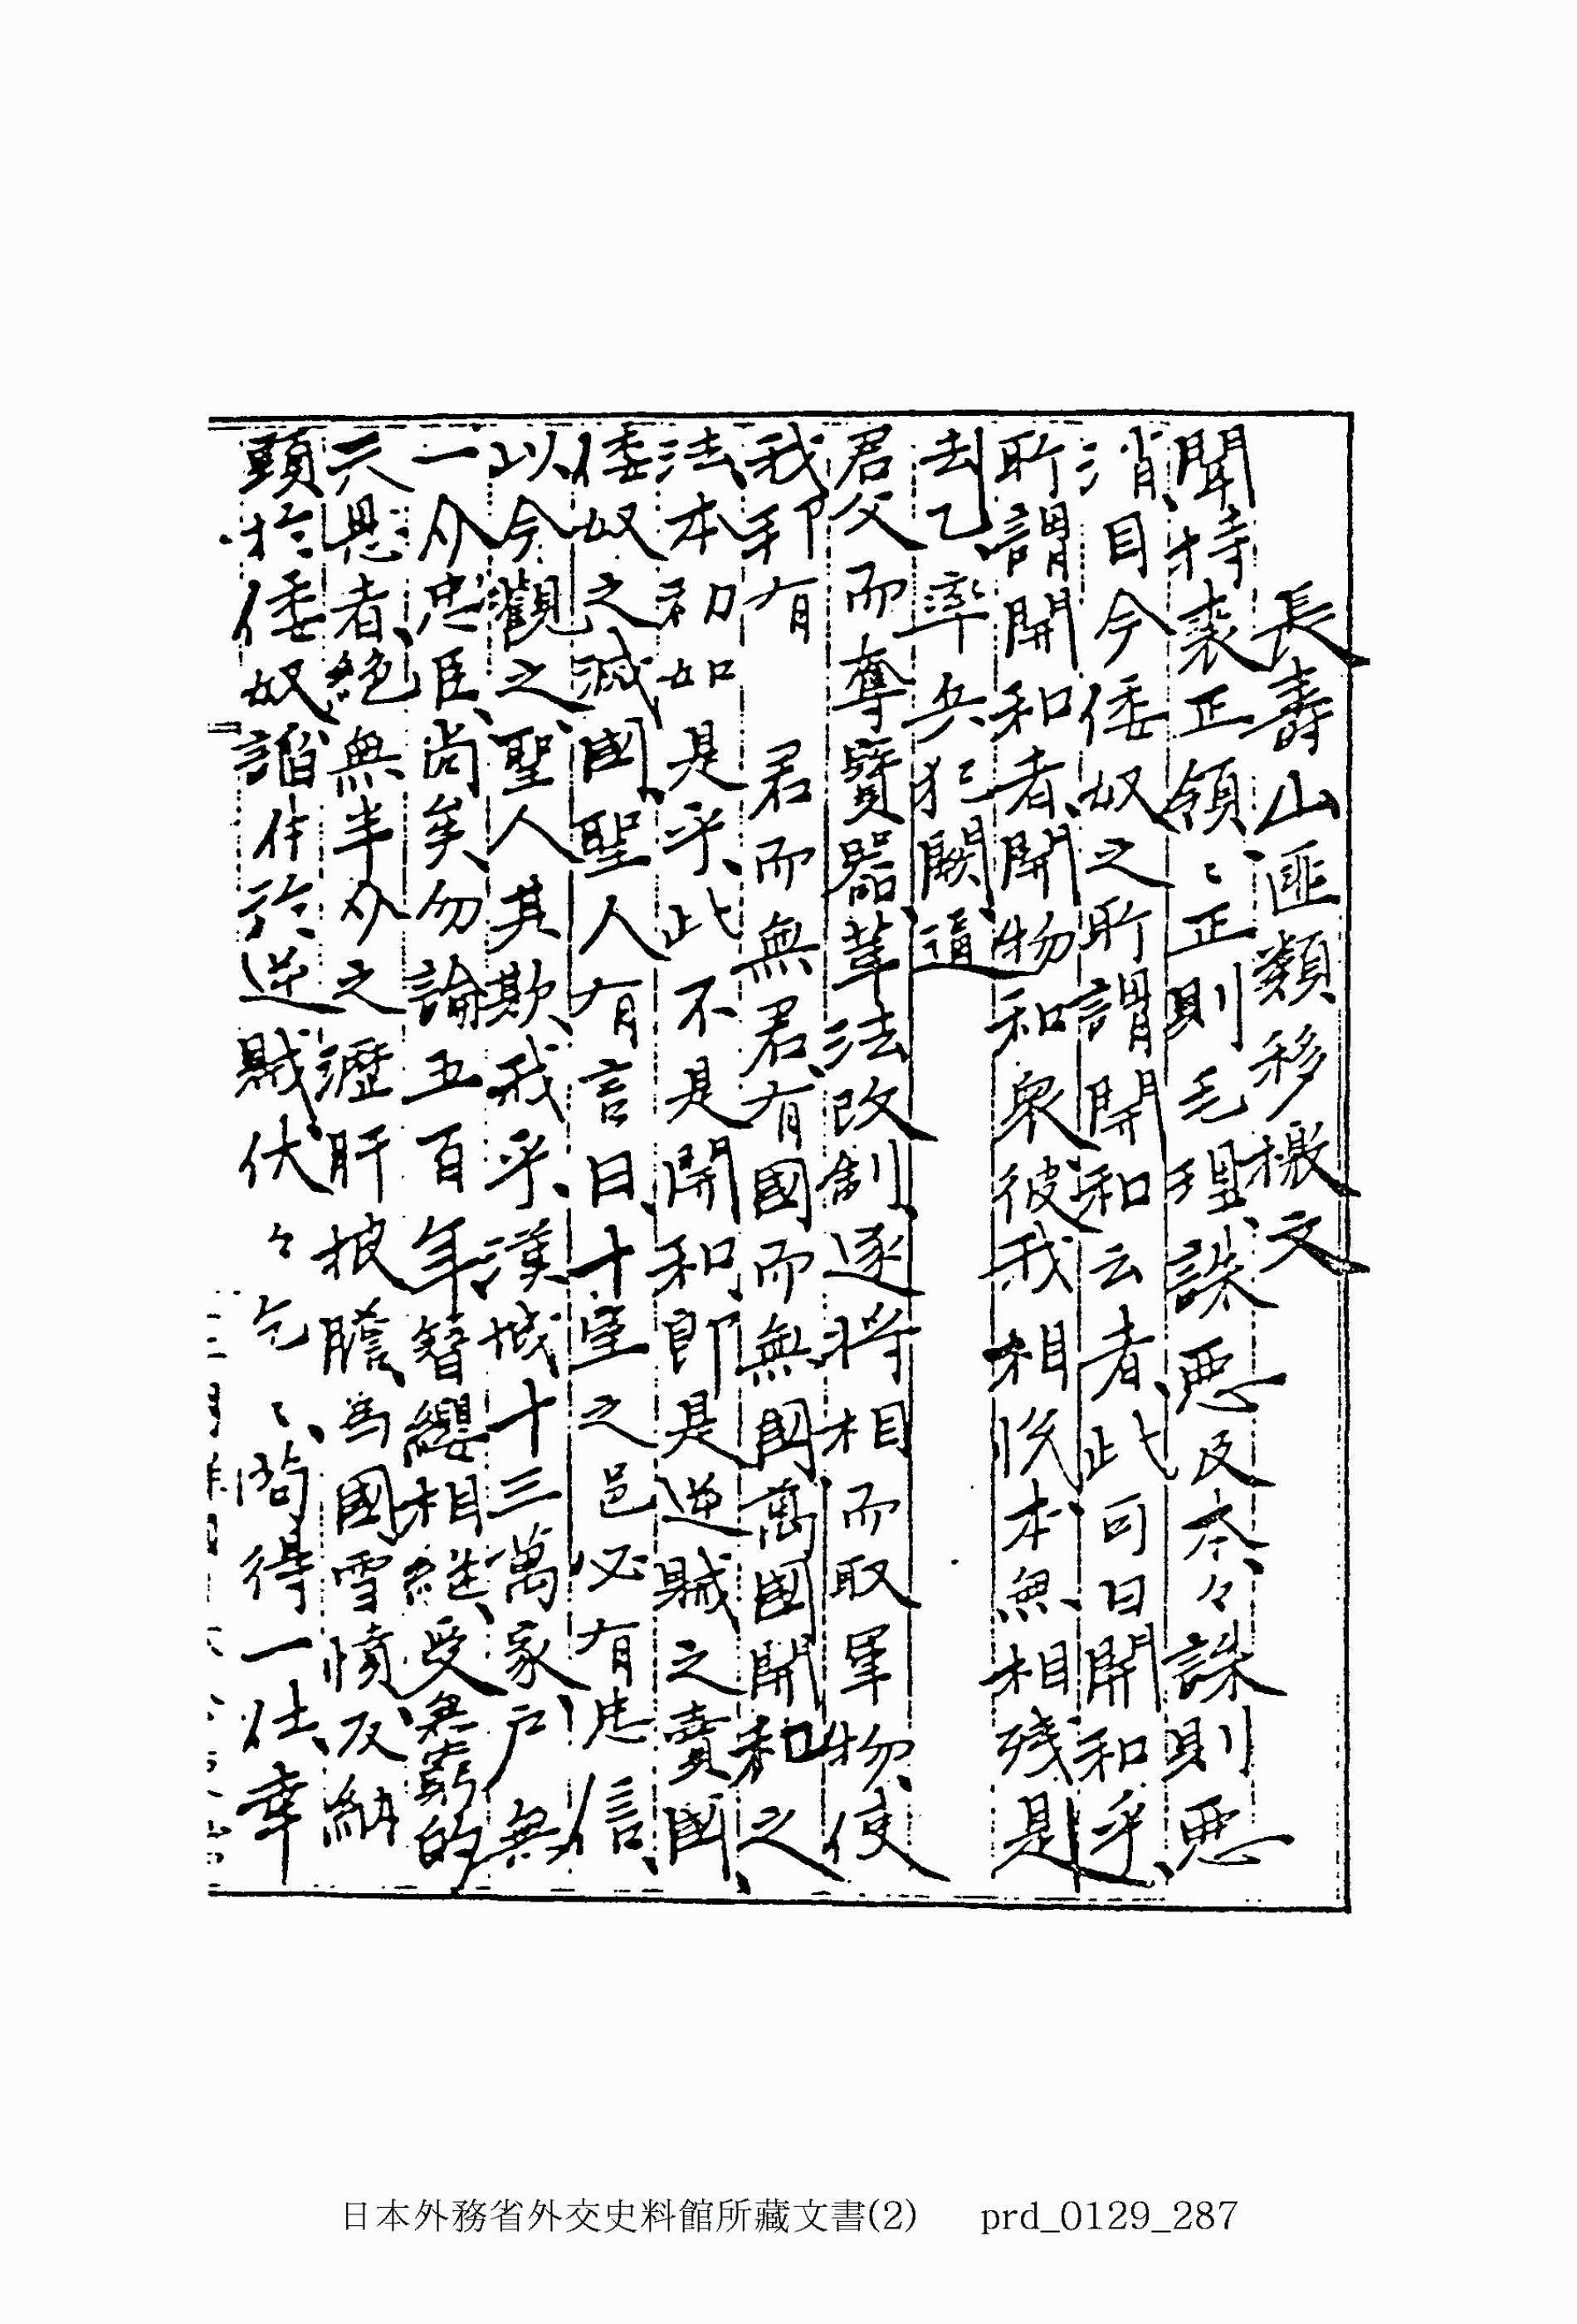 長壽山匪類移檄文
聞持裘正領〻正則毛理、誅惡反本、々誅則惡
消、目今倭奴之所謂開和云者、此可曰開和乎、
所謂開和者、開物和衆、彼我相悅、本無相殘、是
去乙率兵犯闕、逼
君父而奪寶器、革法改制、逐將相而取軍物、使
我邦有　君而無君、有國而無國、萬國開和之
法、本初如是乎、此不是開和、即是逆賊之賣國、
倭奴之滅國、聖人有言曰、十室之邑必有忠信、
以今觀之、聖人其欺我乎、漢城十三萬家戶、無
一介忠臣、尚矣、勿論五百年簪纓相継、受無窮的
天恩者、絶無半介之瀝肝披膽、爲國雪憤、反納
頭於倭奴、諂付於逆賊、伏々乞〻、尚得一仕、幸
日本外務省外交史料館所藏文書(2)　prd_0129_287